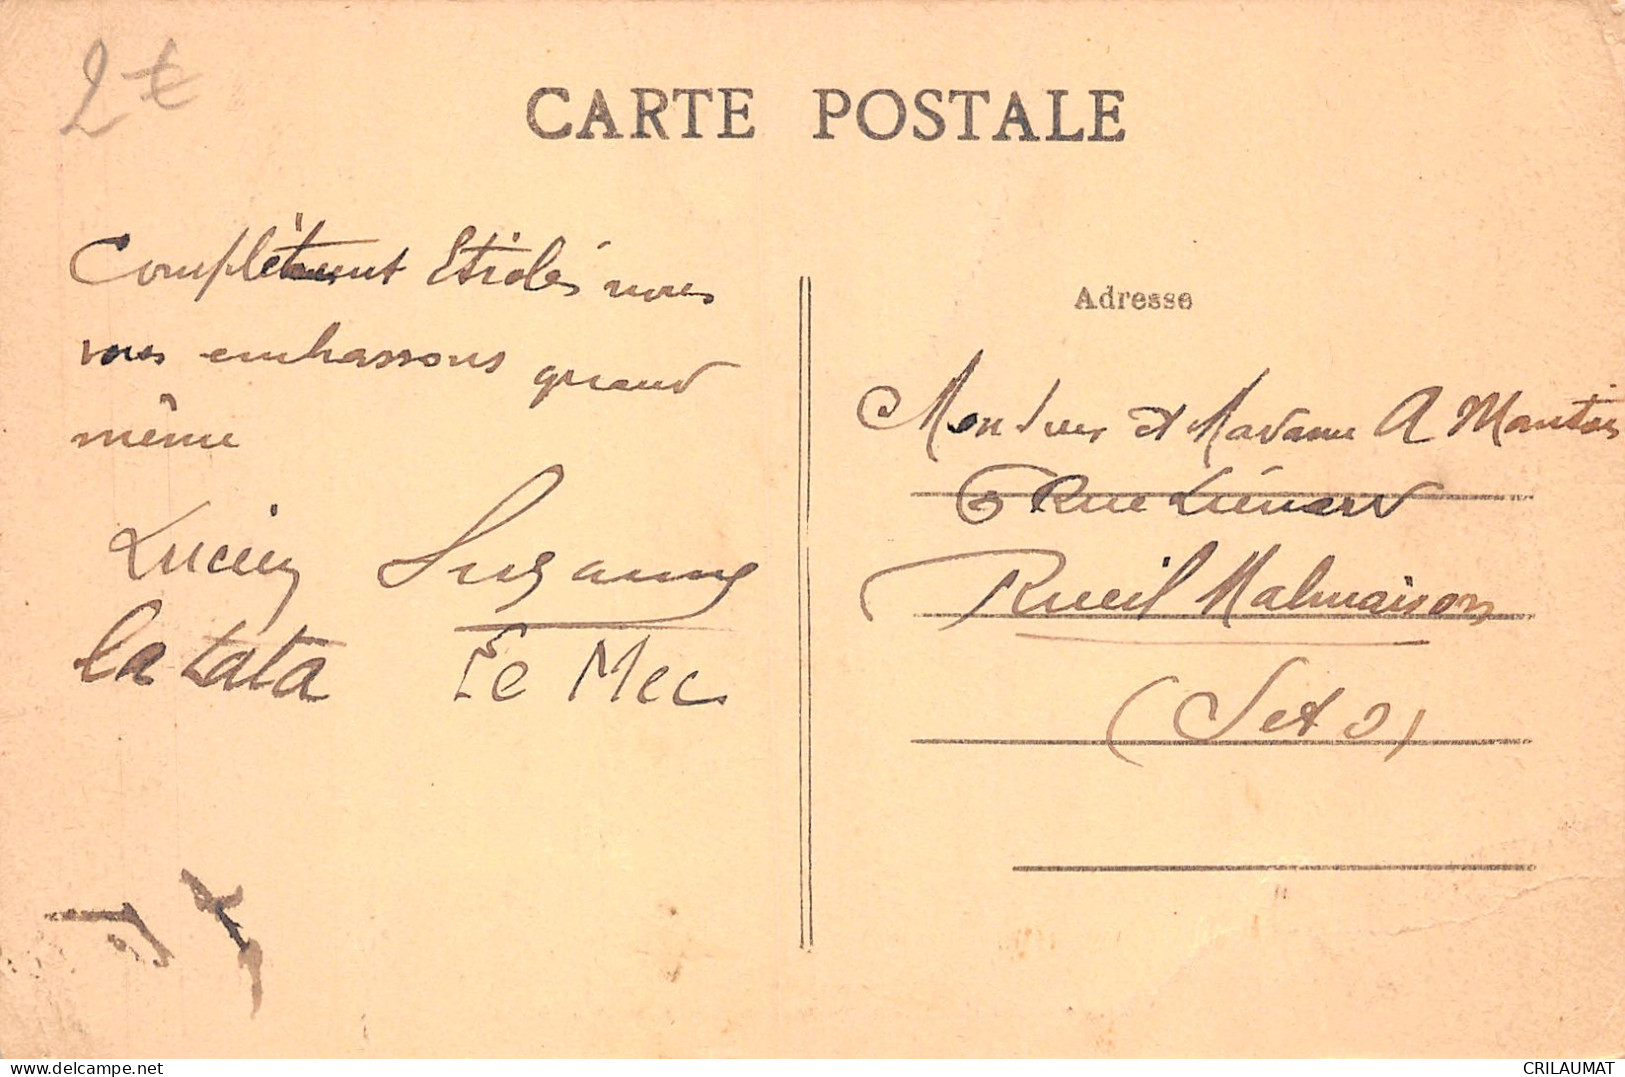 2 €
CARTE POSTALE
Complètement Etiolés nous
vous embrassons quand
même
Lucien Suzanne
la tata Le Mec
Adresse
Monsieur et Madame A Mantois
6 Rue Liénard
Rueil Malmaison
(S et O)
delcampe.net
CRILAUMAT